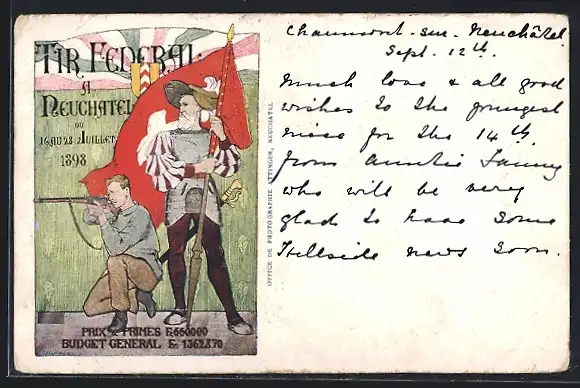 TIR FEDERAL
A
NEUCHATEL
DU
16 AU 28 JUILLET
1898
PRIX & PRIMES Fr. 660000
BUDGET GENERAL Fr. 1362870
OFFICE DE PHOTOGRAPHIE ATTINGER, NEUCHATEL
Chaumont-sur-Neuchâtel
Sept. 12th.
Much love & all good
wishes to the youngest
niece for the 14th
from Auntie Fanny
who will be very
glad to have some
Hillside news soon.